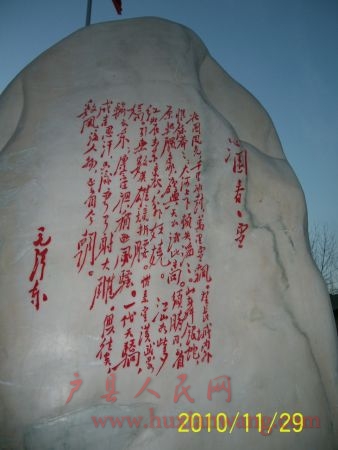 沁园春·雪
北国风光千里冰封万里雪飘。望长城内外
惟余莽莽大河上下顿失滔滔山舞银蛇
原驰腊象欲与天公试比高须晴日看
红装素裹分外妖娆。江山如此多
娇引无数英雄竞折腰。惜秦皇汉武略
输文采唐宗宋祖稍逊风骚一代天骄
成吉思汗只识弯弓射大雕俱往矣
数风流人物还看今朝
毛泽东
户县人民网
2010/11/29